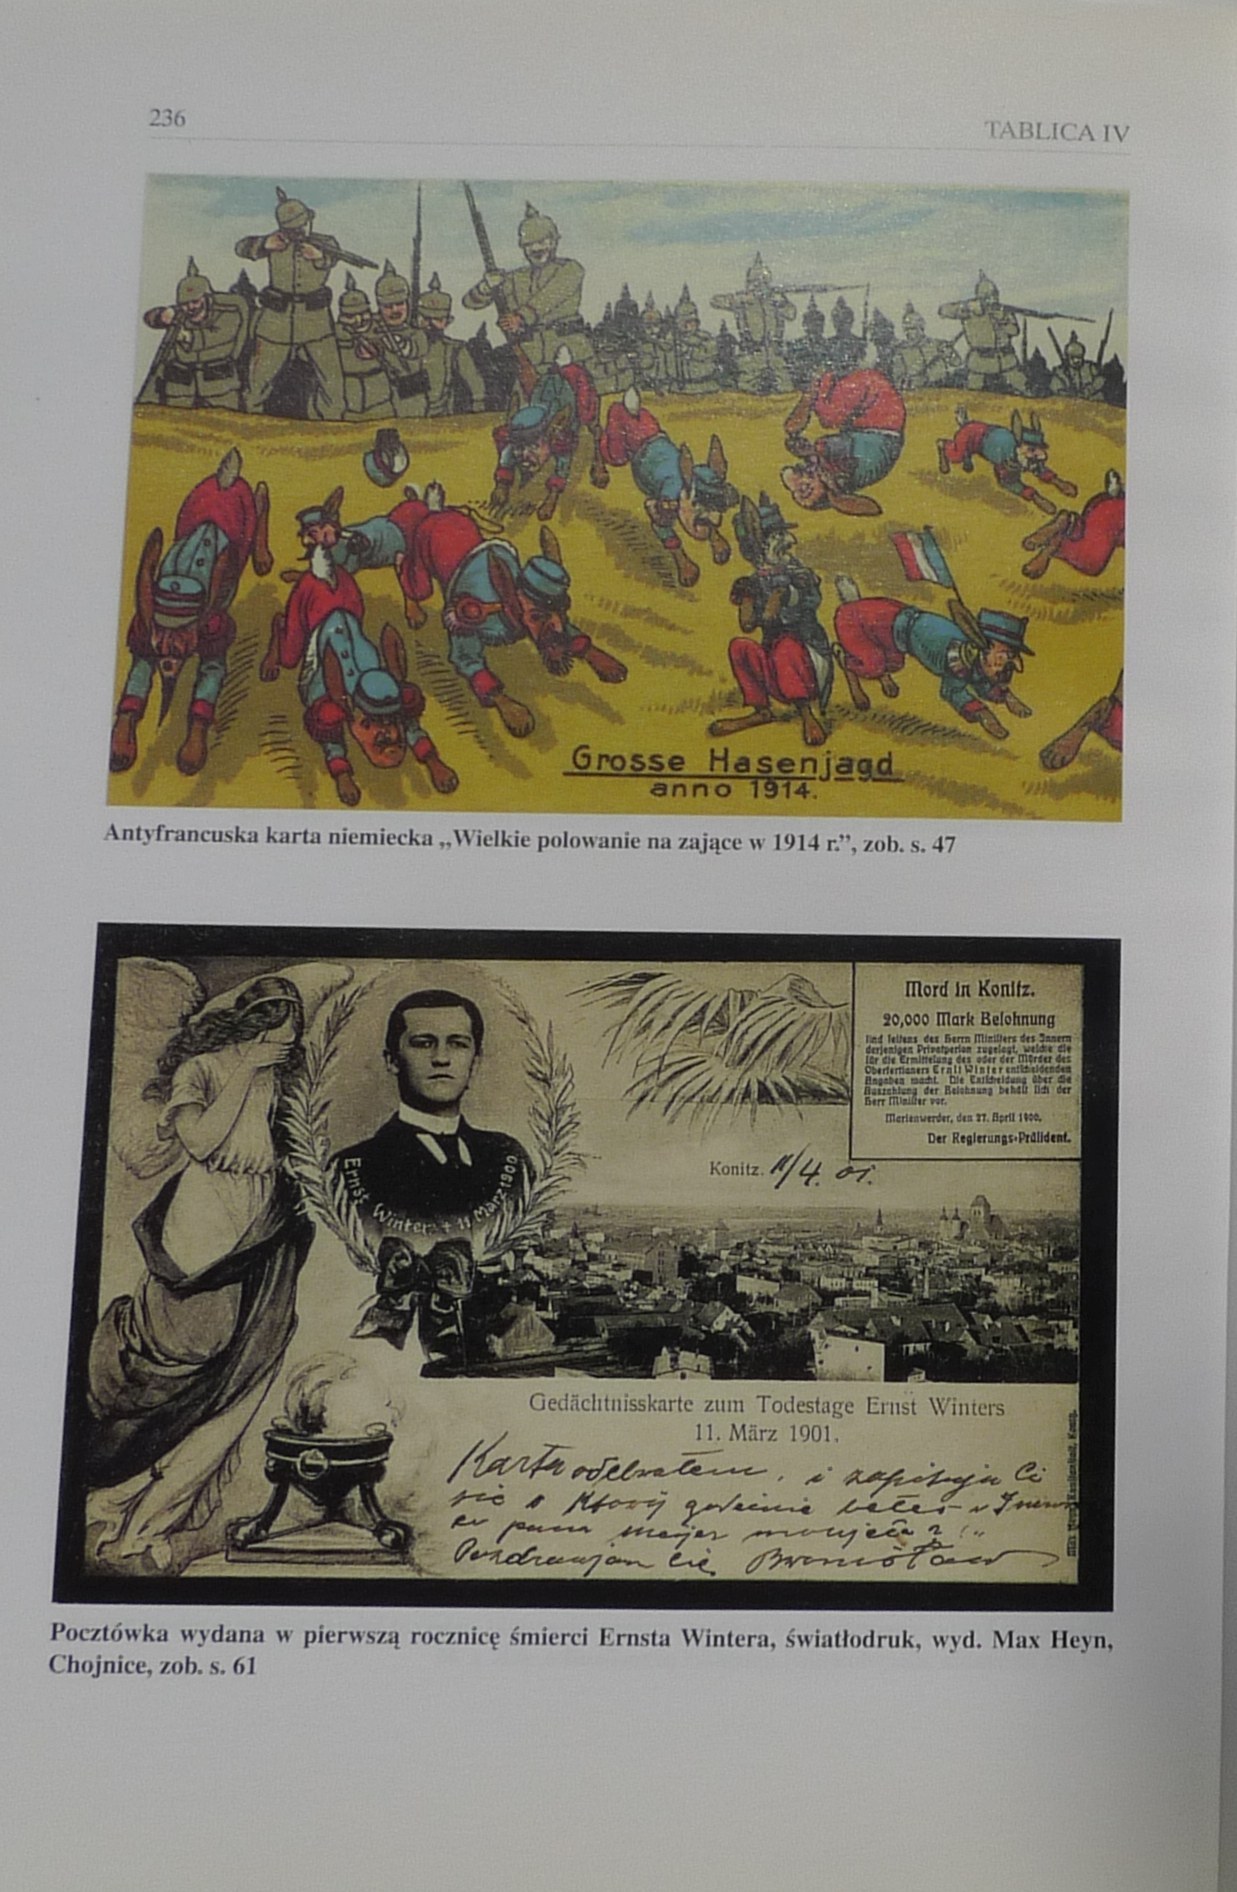 236
TABLICA IV
Grosse Hasenjagd
anno 1914.
Antyfrancuska karta niemiecka „Wielkie polowanie na zające w 1914 r.”, zob. s. 47
Mord in Konitz.
20,000 Mark Belohnung
sind seitens des Herrn Ministers des Innern
derjenigen Privatperson zugesagt, welche die
für die Ermittelung des oder der Mörder des
Obertertianers Ernst Winter entscheidenden
Angaben macht. Die Entscheidung über die
Auszahlung der Belohnung behält sich der
Herr Minister vor.
Marienwerder, den 27. April 1900.
Der Regierungs-Präsident.
Konitz. 11/4. 01.
Ernst Winter + 11 März 1900
Gedächtnisskarte zum Todestage Ernst Winters
11. März 1901.
Karta odebrałem, i zapisuja Ci
się o
pana
Pozdrawjam Cię. Bronisław
Max Heyn, Konitz.
Pocztówka wydana w pierwszą rocznicę śmierci Ernsta Wintera, światłodruk, wyd. Max Heyn,
Chojnice, zob. s. 61